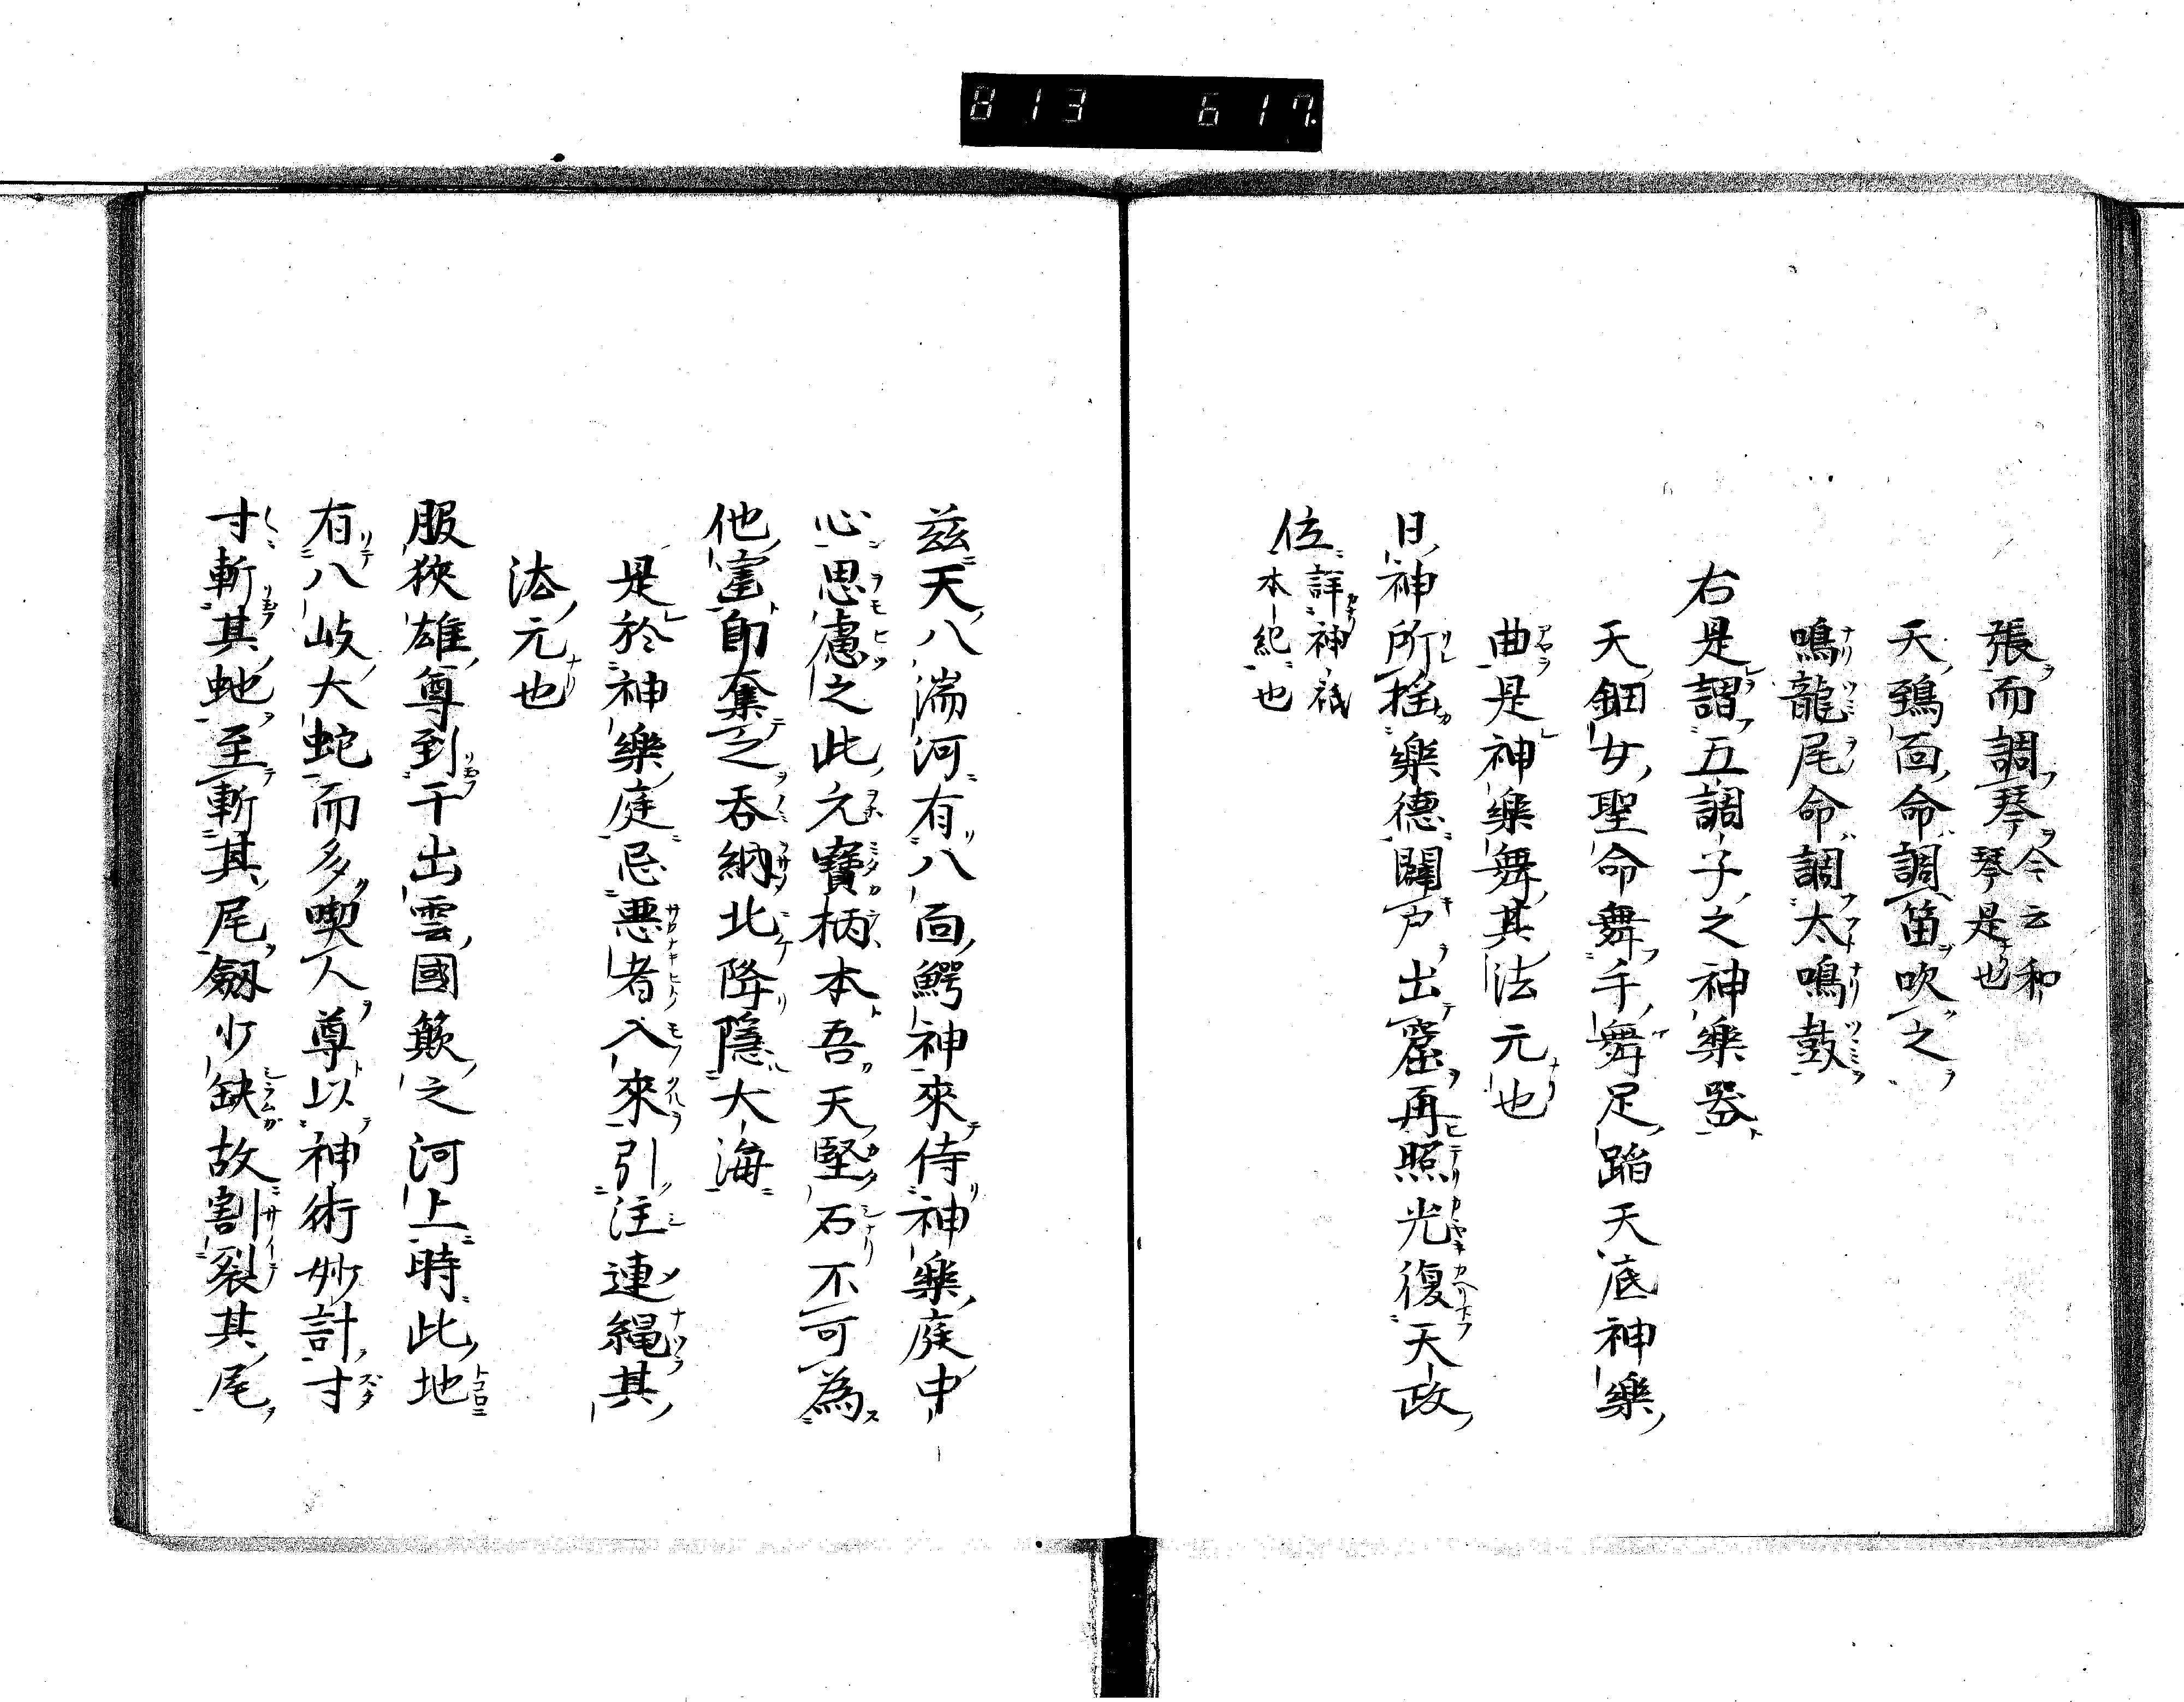 813 617.
張而調琴今云和琴是也
天鵄面命調笛吹之
鳴龍尾命調太鳴鼓
右是謂五調子之神樂器
天鈿女聖命舞手舞足蹈天底神樂
曲是神樂舞其法元也
日神所搖樂德闢戸出窟再照光復天政
位詳神祇本紀也
茲天八湍河有八面鰐神來侍神樂庭中
心思慮之此元寶柄本吾天堅石不可為
他寶即奪之吞納北降隱大海
是於神樂庭忌悪者入來引注連繩其
法元也
服狹雄尊到于出雲國簸之河上時此地
有八岐大蛇而多喫人尊以神術妙計寸
寸斬其虵至斬其尾劔少缺故割裂其尾